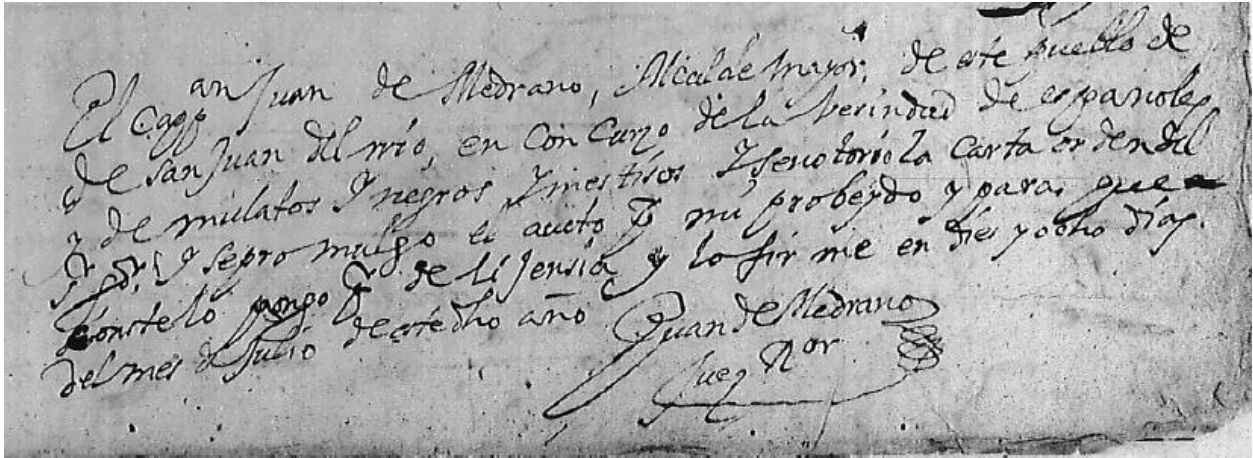 El Capp an Juan de Medrano, Alcalde mayor, de este pueblo de
de san Juan del rrío, en con curzo de la besindad de españoles,
y de mulatos y negros y mestisos y se notorió la carta orden del
Sr. y se pro mulgo el aucto p mi probeydo y para que
conste lo pongo p de lijensia y lo fir me en dies y ocho días.
del mes de Julio de este dho año
Juan de Medrano
Juez Ror